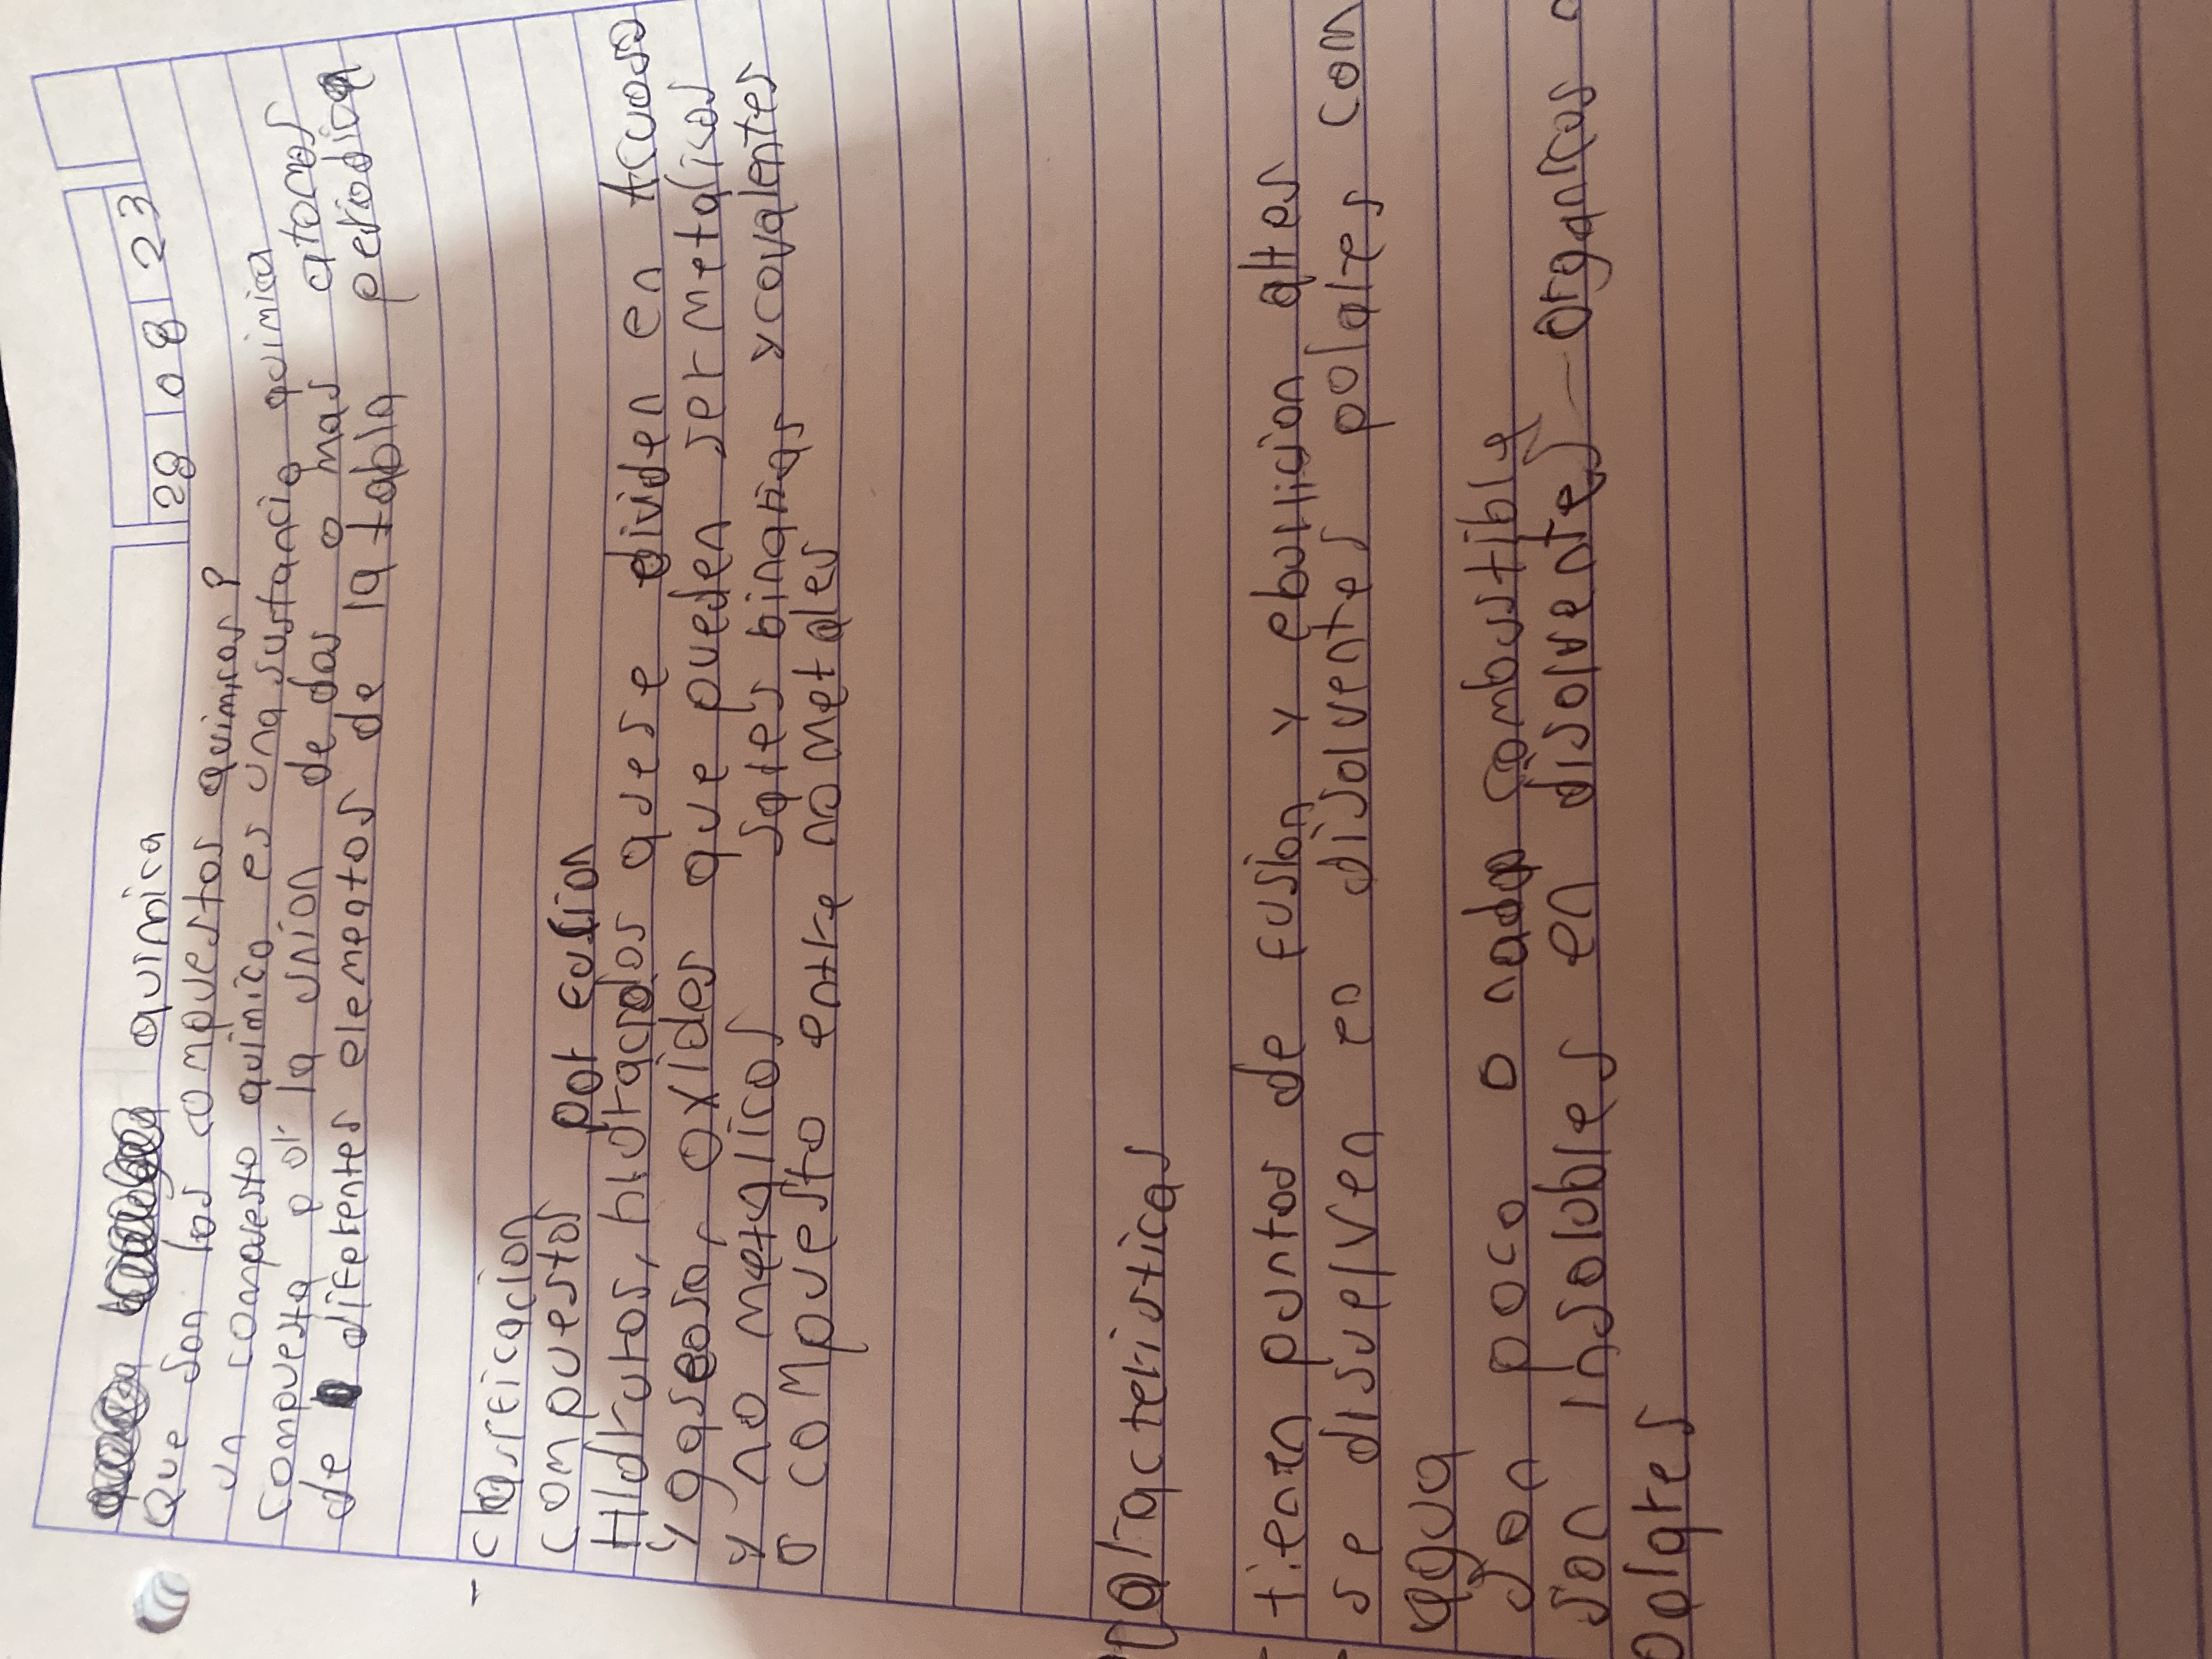 quimica
28 08 23
Que son los compuestos quimicos?
un compuesto quimico es una sustancia quimica
compuesta por la union de dos o mas atomos
de diferentes elementos de la tabla periodica
- clasificacion
compuestos por
Hidruros, hidracidos que se dividen en Acuoso
y gaseoso, oxides que pueden ser metalicos
y no metalicos sales binarias y covalentes
o compuesto entre no metales
Caracteristicas
tienen puntos de fusion y ebullicion altes
se disuelven en disolventes polares com
agua
son poco o nada combustible
son insolubles en disolventes organicos